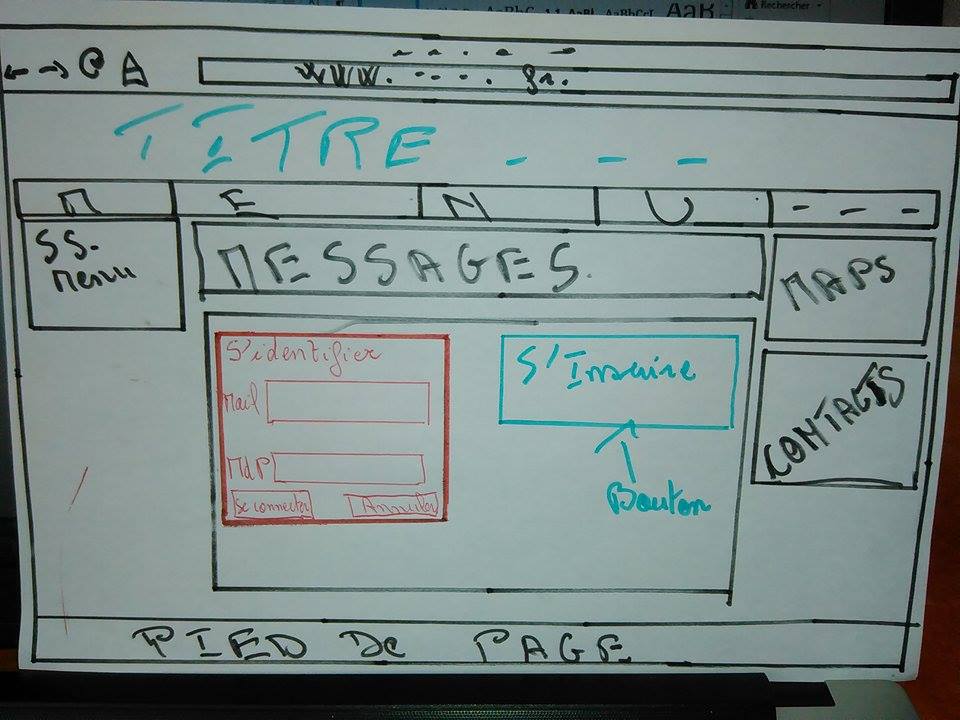 Rechercher
www. ----. gr.
TITRE - - -
M E N U - - -
SS-
Menu
MESSAGES.
MAPS
S'identifier
Mail
MdP
Se connecter
Annuler
S'Inscrire
Bouton
CONTACTS
PIED De PAGE